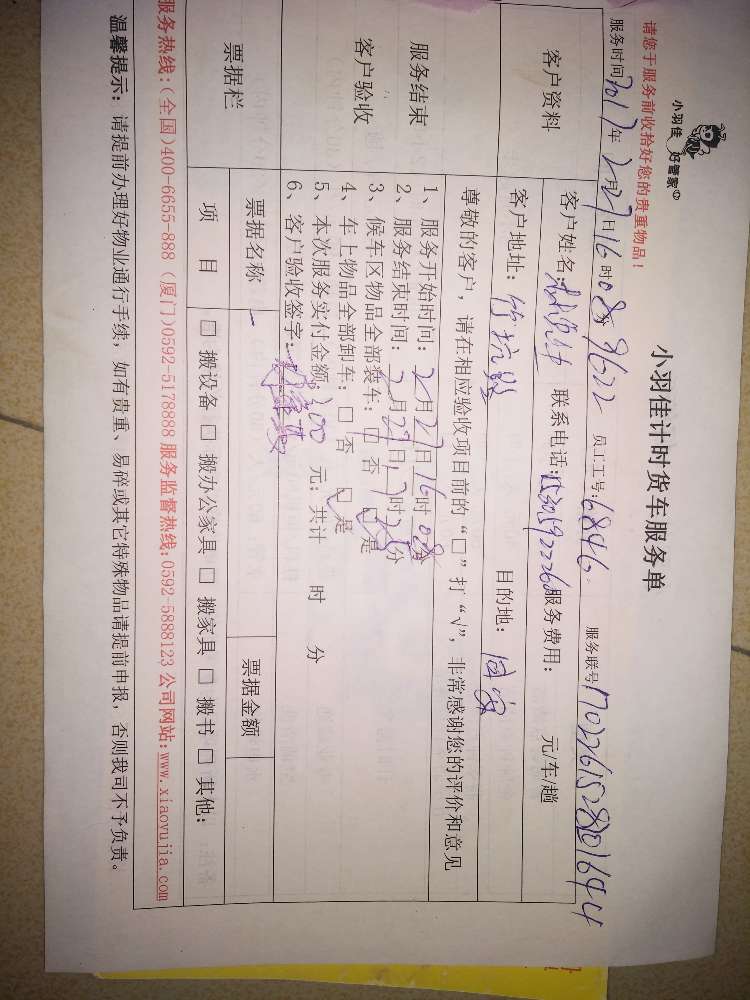 小羽佳 好管家
小羽佳计时货车服务单
请您于服务前收拾好您的贵重物品！
服务时间2017年2月27日16时08分 9622 员工工号:6846 服务联号1702261528201644
客户资料
客户姓名: 联系电话:15305922260服务费用: 元/车/趟
客户地址: 竹坑路 目的地: 同安
服务结束
客户验收
尊敬的客户，请在相应验收项目前的“□”打“√”，非常感谢您的评价和意见
1、服务开始时间：2月27日16时08分
2、服务结束时间：2月27日17时25分
3、候车区物品全部装车：□ 否 □ 是
4、车上物品全部卸车：□ 否 □ 是
5、本次服务实付金额：200 元；共计 时 分
6、客户验收签字：
票据栏
票据名称 票据金额
项 目 □ 搬设备 □ 搬办公家具 □ 搬家具 □ 搬书 □ 其他：
服务热线:(全国)400-6655-888 (厦门)0592-5178888 服务监督热线:0592-5888123 公司网站:www.xiaoyujia.com
温馨提示：请提前办理好物业通行手续，如有贵重、易碎或其它特殊物品请提前申报，否则我司不予负责。